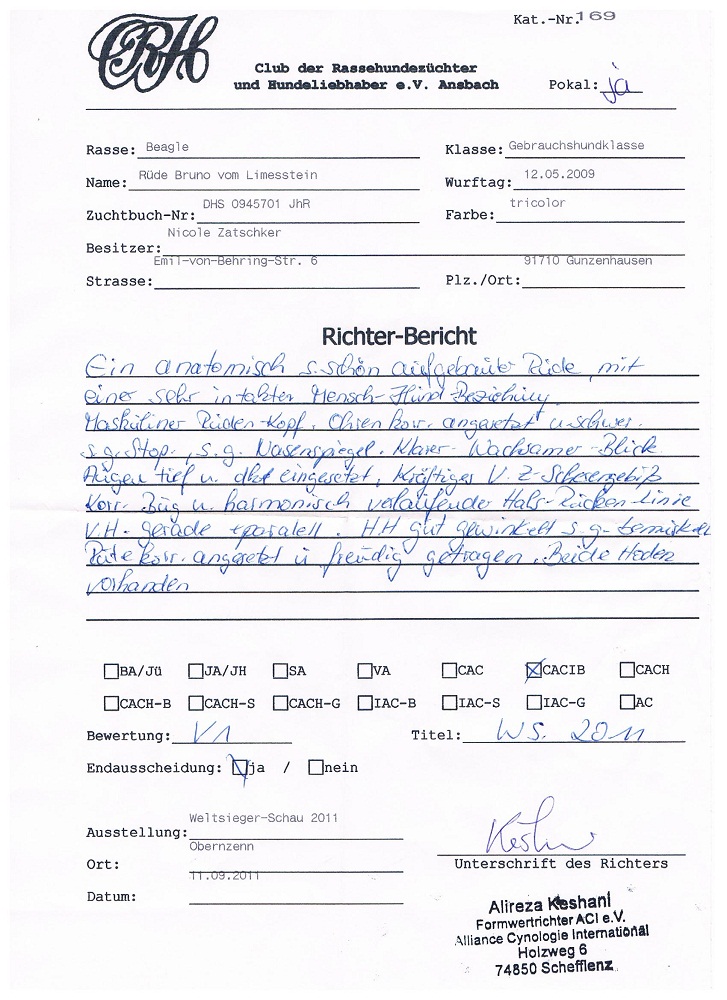 Kat.-Nr. 169
CRH
Club der Rassehundezüchter
und Hundeliebhaber e.V. Ansbach
Pokal: ja
Rasse: Beagle
Klasse: Gebrauchshundklasse
Name: Rüde Bruno vom Limesstein
Wurftag: 12.05.2009
Zuchtbuch-Nr: DHS 0945701 JhR
Farbe: tricolor
Besitzer: Nicole Zatschker
Strasse: Emil-von-Behring-Str. 6
Plz./Ort: 91710 Gunzenhausen
Richter-Bericht
Ein anatomisch s. schön aufgebauter Rüde, mit
einer sehr intakten Mensch-Hund Beziehung.
Maskuliner Rüden-Kopf. Ohren korr. angesetzt u. schwer.
s.g. Stop., s.g. Nasenspiegel. Klarer- Wachsamer-Blick
Augen tief u. dkl eingesetzt, Kräftiges V.Z-Scherengebiß
Korr. Bug u. harmonisch verlaufender Hals-Rücken-Linie
V.H- gerade + paralell. HH gut gewinkelt s.g.
Rute korr. angesetzt u freudig getragen. Beide Hoden
vorhanden
BA/Jü JA/JH SA VA CAC CACIB CACH
CACH-B CACH-S CACH-G IAC-B IAC-S IAC-G AC
Bewertung: V1
Titel: WS. 2011
Endausscheidung: ja / nein
Ausstellung: Weltsieger-Schau 2011
Ort: Obernzenn
Datum: 11.09.2011
Unterschrift des Richters
Alireza Keshani
Formwertrichter ACI e.V.
Alliance Cynologie International
Holzweg 6
74850 Schefflenz